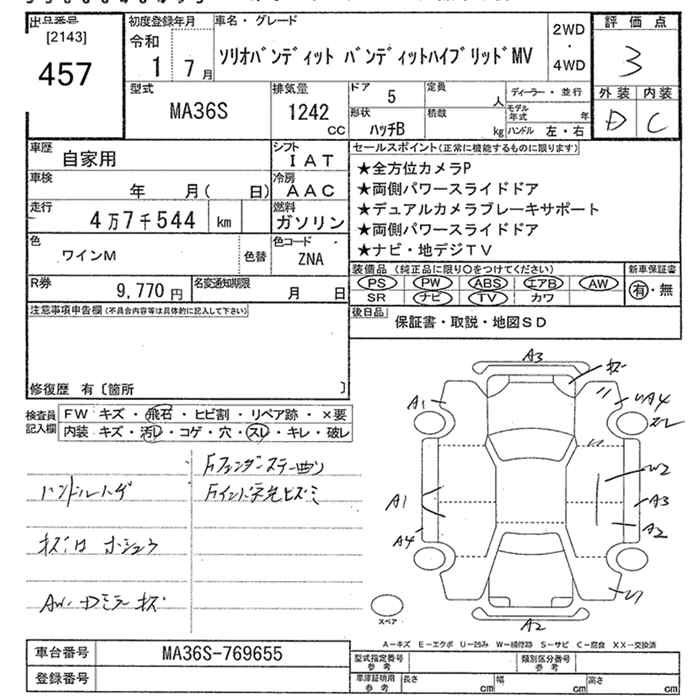 出品番号 [2143] 457
初度登録年月 令和 1年 7月
車名・グレード
ソリオバンディット バンディットハイブリッドMV
2WD ・ 4WD
評価点 3
外装 D 内装 C
型式 MA36S
排気量 1242 CC
ドア 5
定員 人
形状 ハッチB
積載 kg
ディーラー・並行
モデル年式 年
ハンドル 左・右
車歴 自家用
シフト IAT
車検 年 月( 日)
冷房 AAC
走行 4万7千544 km
燃料 ガソリン
色 ワインM 色替
色コード ZNA
R券 9,770円
名変通知期限 月 日
セールスポイント(正常に機能するものに限ります)
★全方位カメラP
★両側パワースライドドア
★デュアルカメラブレーキサポート
★両側パワースライドドア
★ナビ・地デジTV
装備品 (純正品に限り○をつけてください) 新車保証書
PS PW ABS エアB AW 有・無
SR ナビ TV カワ
後日品 保証書・取説・地図SD
注意事項申告欄(不具合内容等は具体的に記入して下さい)
修復歴 有〔箇所 〕
検査員記入欄
FW キズ・飛石・ヒビ割・リペア跡・×要
内装 キズ・汚レ・コゲ・穴・スレ・キレ・破レ
Fフェンダーステー曲り
ハンドルハゲ
キズ有 ホシュウ
AW・Dミラーキズ
A3
キズ
A1
A4
スレ
W2
A1
A3
A2
A4
U1
A2
スペア
A-キズ E-エクボ U-凹み W-補修跡 S-サビ C-腐食 XX-交換済
車台番号 MA36S-769655
登録番号
型式指定番号 参考
類別区分番号 参考
車庫証明用 参考 長さ cm 幅 cm 高さ cm